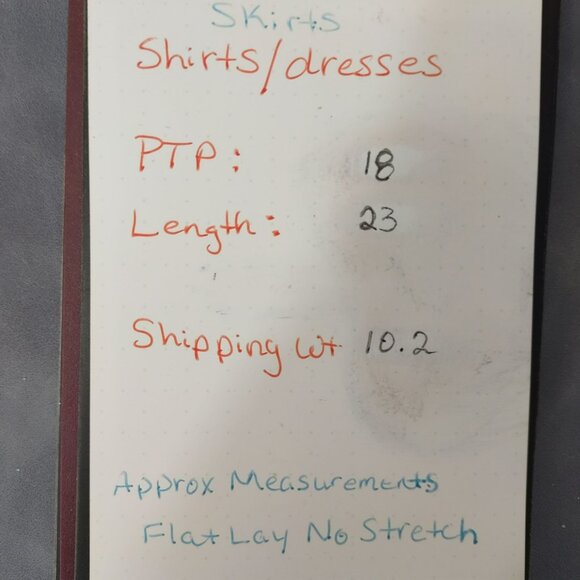 Skirts
Shirts/dresses
PTP: 18
Length: 23
Shipping Wt 10.2
Approx Measurements
Flat Lay No Stretch